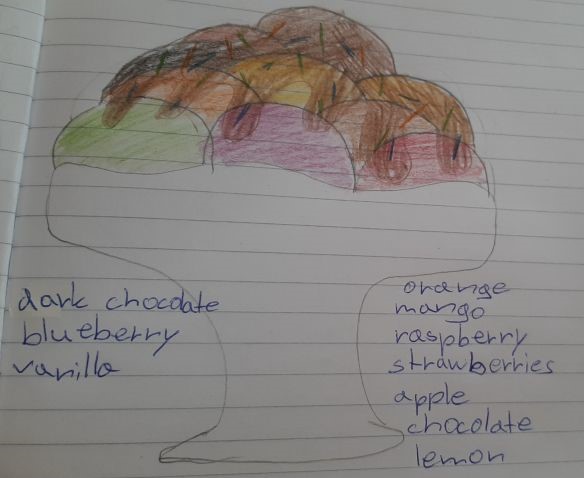 dark chocolate
blueberry
vanilla
orange
mango
raspberry
strawberries
apple
chocolate
lemon